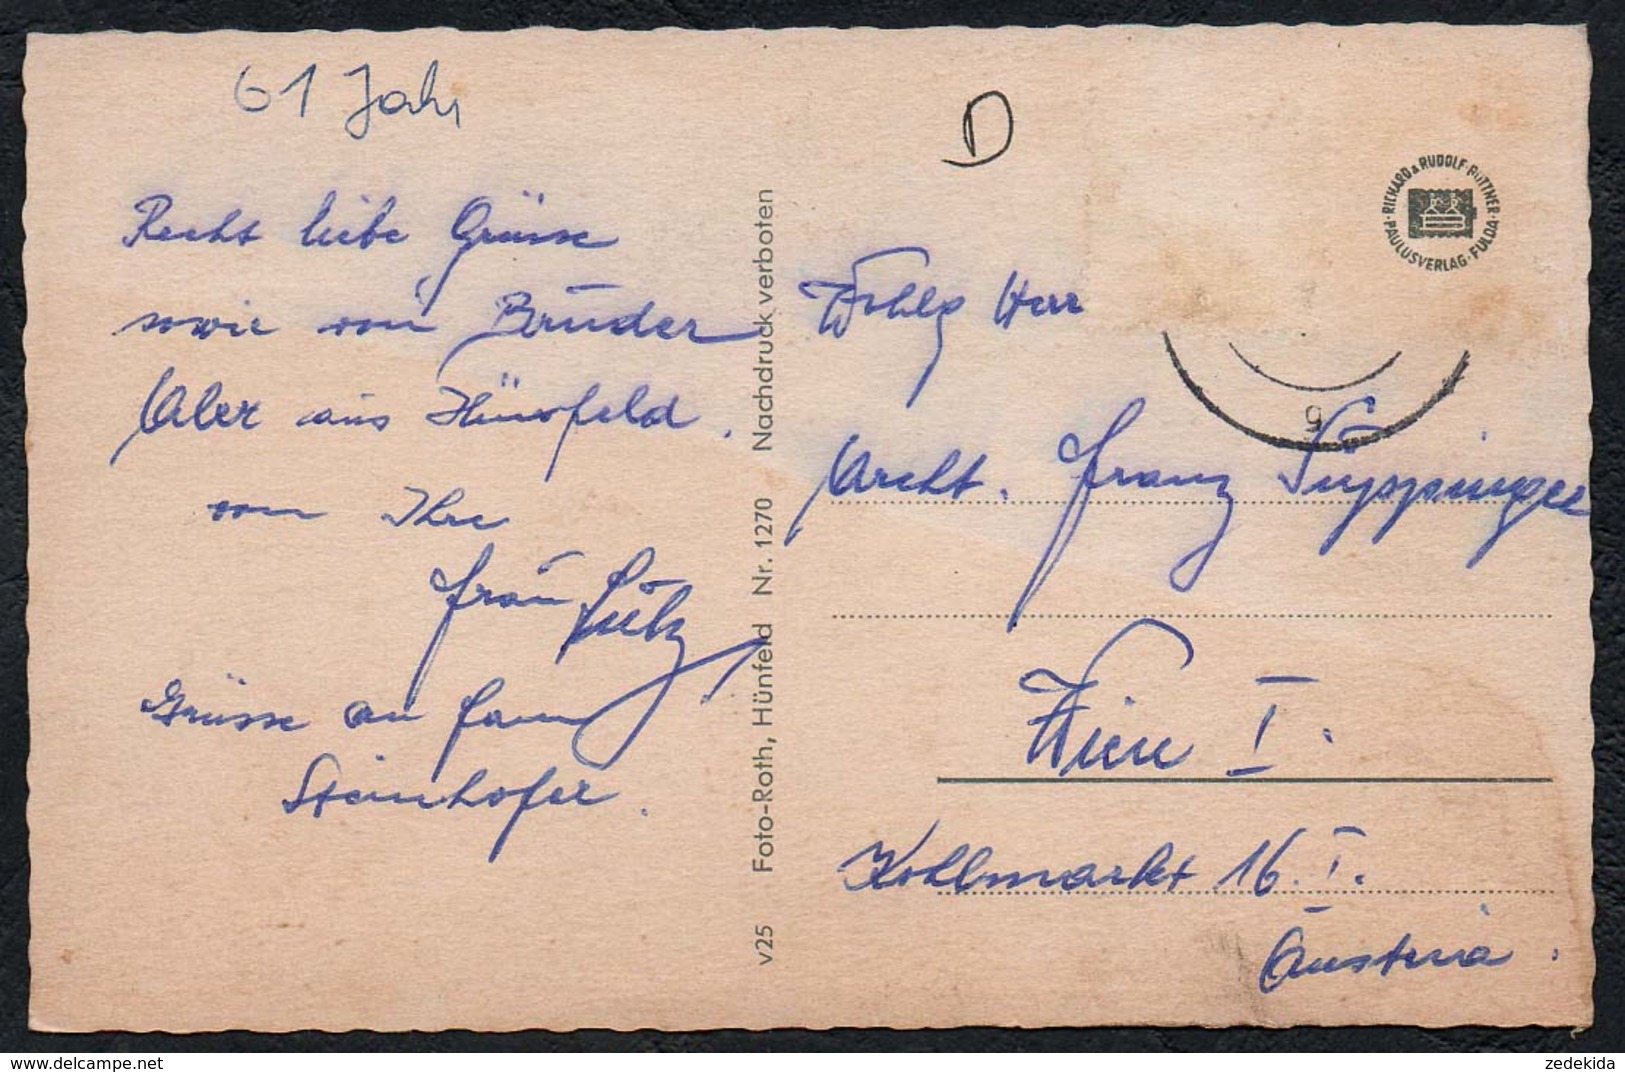 61 Jahr
D
Recht liebe Grüsse
sowie von Bruder
Aber aus Hünfeld.
von Ihre
Frau Lutz
Grüsse an Fam
Steinhofer.
v25 Foto-Roth, Hünfeld Nr. 1270 Nachdruck verboten
RICHARD & RUDOLF BÜTTNER · FULDA · PAULUSVERLAG ·
5
Wohlg Herr
Archt. Franz Tuppinger
Wien I.
Kohlmarkt 16. I.
Austria.
zedekida